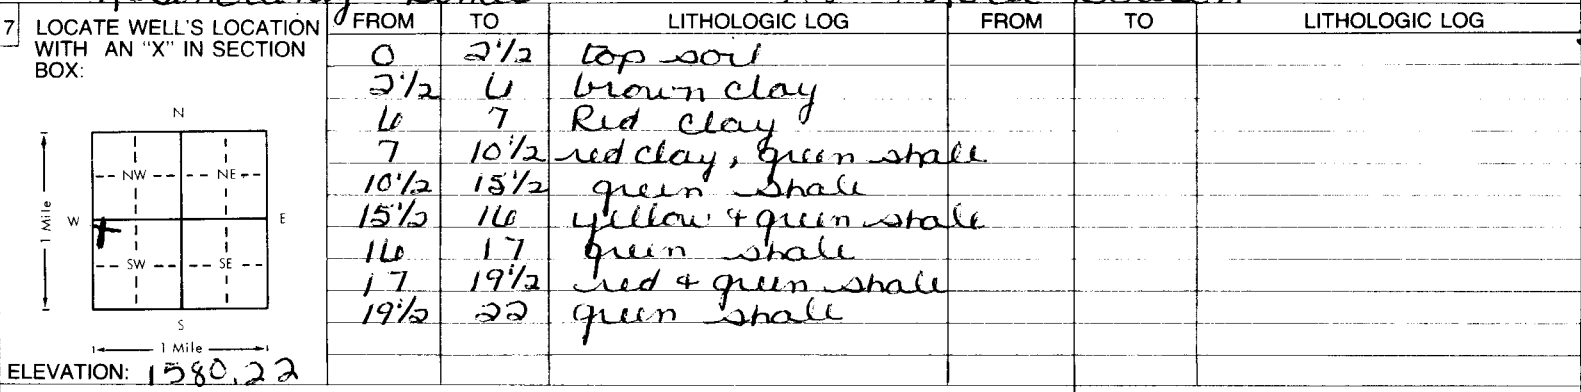 7 LOCATE WELL'S LOCATION WITH AN "X" IN SECTION BOX:
N
NW NE
W E
SW SE
S
1 Mile
1 Mile
ELEVATION: 1580.22
FROM TO LITHOLOGIC LOG FROM TO LITHOLOGIC LOG
0 2 1/2 top soil
2 1/2 6 brown clay
6 7 Red clay
7 10 1/2 red clay, green shale
10 1/2 15 1/2 green shale
15 1/2 16 yellow & green shale
16 17 green shale
17 19 1/2 red & green shale
19 1/2 22 green shale